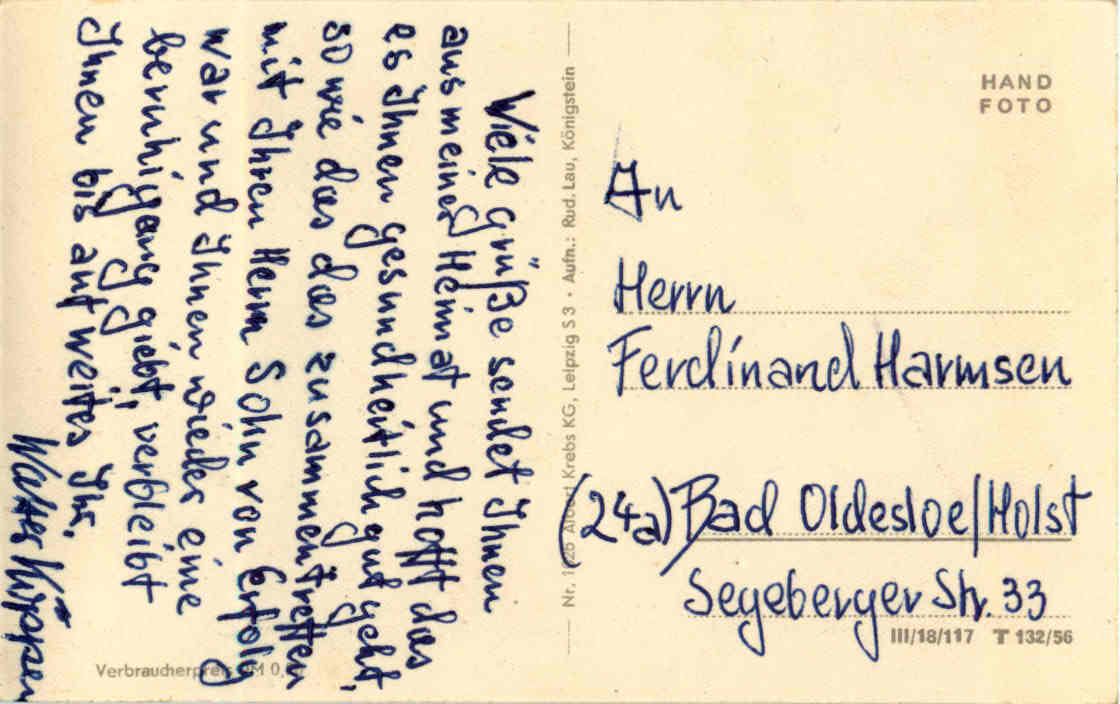 Viele grüße sendet Ihnen
aus meiner Heimat und hofft das
es Ihnen gesundheitlich gut geht,
so wie das das zusammentreffen
mit Ihren Herrn Sohn von Erfolg
war und Ihnen wieder eine
beruhigung giebt, verbleibt
Ihnen bis auf weites Ihr.
Walter
Verbraucherpreis DM 0,
Albert Krebs KG, Leipzig S 3 • Aufn.: Rud. Lau, Königstein
HAND
FOTO
An
Herrn
Ferdinand Harmsen
(24a) Bad Oldesloe/Holst
Segeberger Str. 33
III/18/117 T 132/56